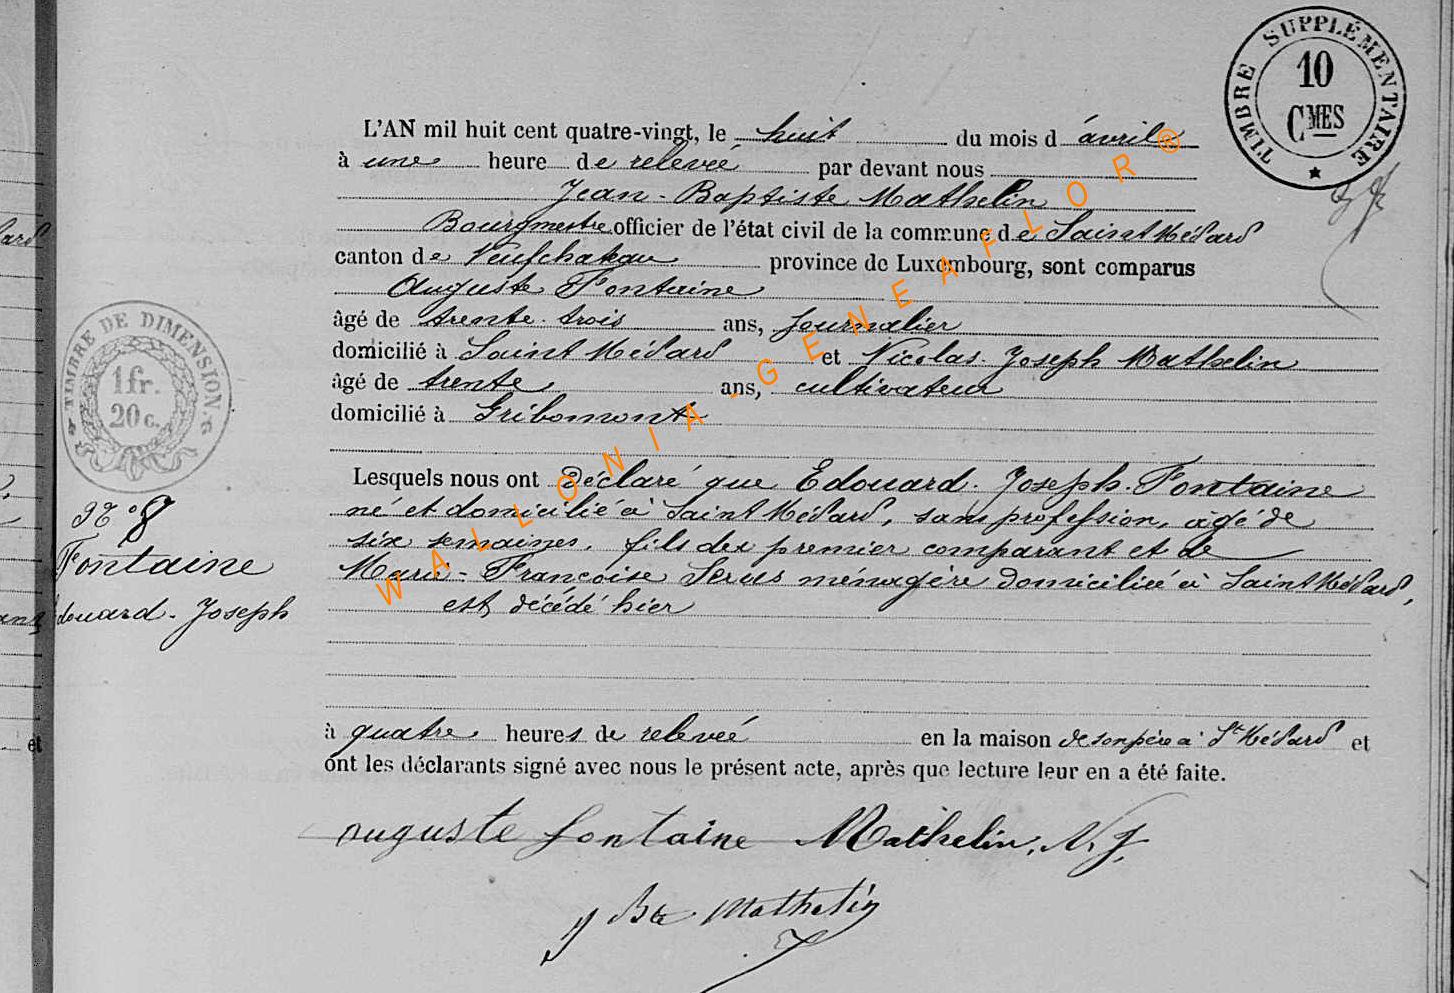 TIMBRE SUPPLÉMENTAIRE
10
CMES
L'AN mil huit cent quatre-vingt, le huit du mois d'avril
à une heure de relevée par devant nous
Jean-Baptiste Mathelin
Bourgmestre officier de l'état civil de la commune de Saint Médard
canton de Neufchateau province de Luxembourg, sont comparus
Auguste Fontaine
âgé de trente-trois ans, journalier
domicilié à Saint Médard et Nicolas-Joseph Mathelin
âgé de trente ans, cultivateur
domicilié à Gribomont
TIMBRE DE DIMENSION.
1 fr.
20 c.
Lesquels nous ont déclaré que Edouard-Joseph Fontaine
né et domicilié à Saint Médard, sans profession, âgé de
six semaines, fils du premier comparant et de
Marie-Françoise ménagère domiciliée à Saint Médard,
est décédé hier
N° 8
Fontaine
douard-Joseph
à quatre heures de relevée en la maison de son père à St Médard et
ont les déclarants signé avec nous le présent acte, après que lecture leur en a été faite.
auguste fontaine Mathelin, N. J.
J Bte Mathelin
et
WALLONIA-GENEAFLOR®